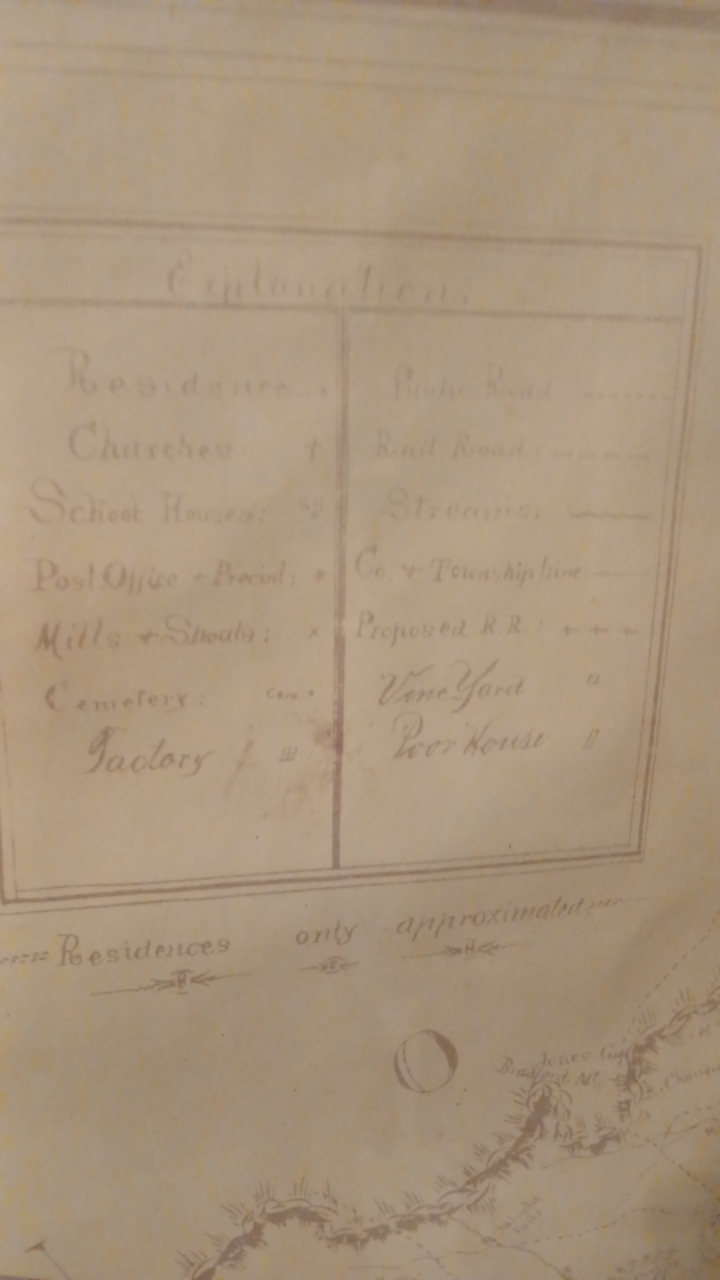 Explanation.
Residence.
Public Road
Churches
Rail Road:
School Houses:
Streams:
Post Office & Precint:
Co. & Township line
Mills & Shoals:
Proposed R.R.:
Cemetery: Cem.
Vine Yard
Factory
Poor House
Residences only approximated
Jones
Bradford Mt.